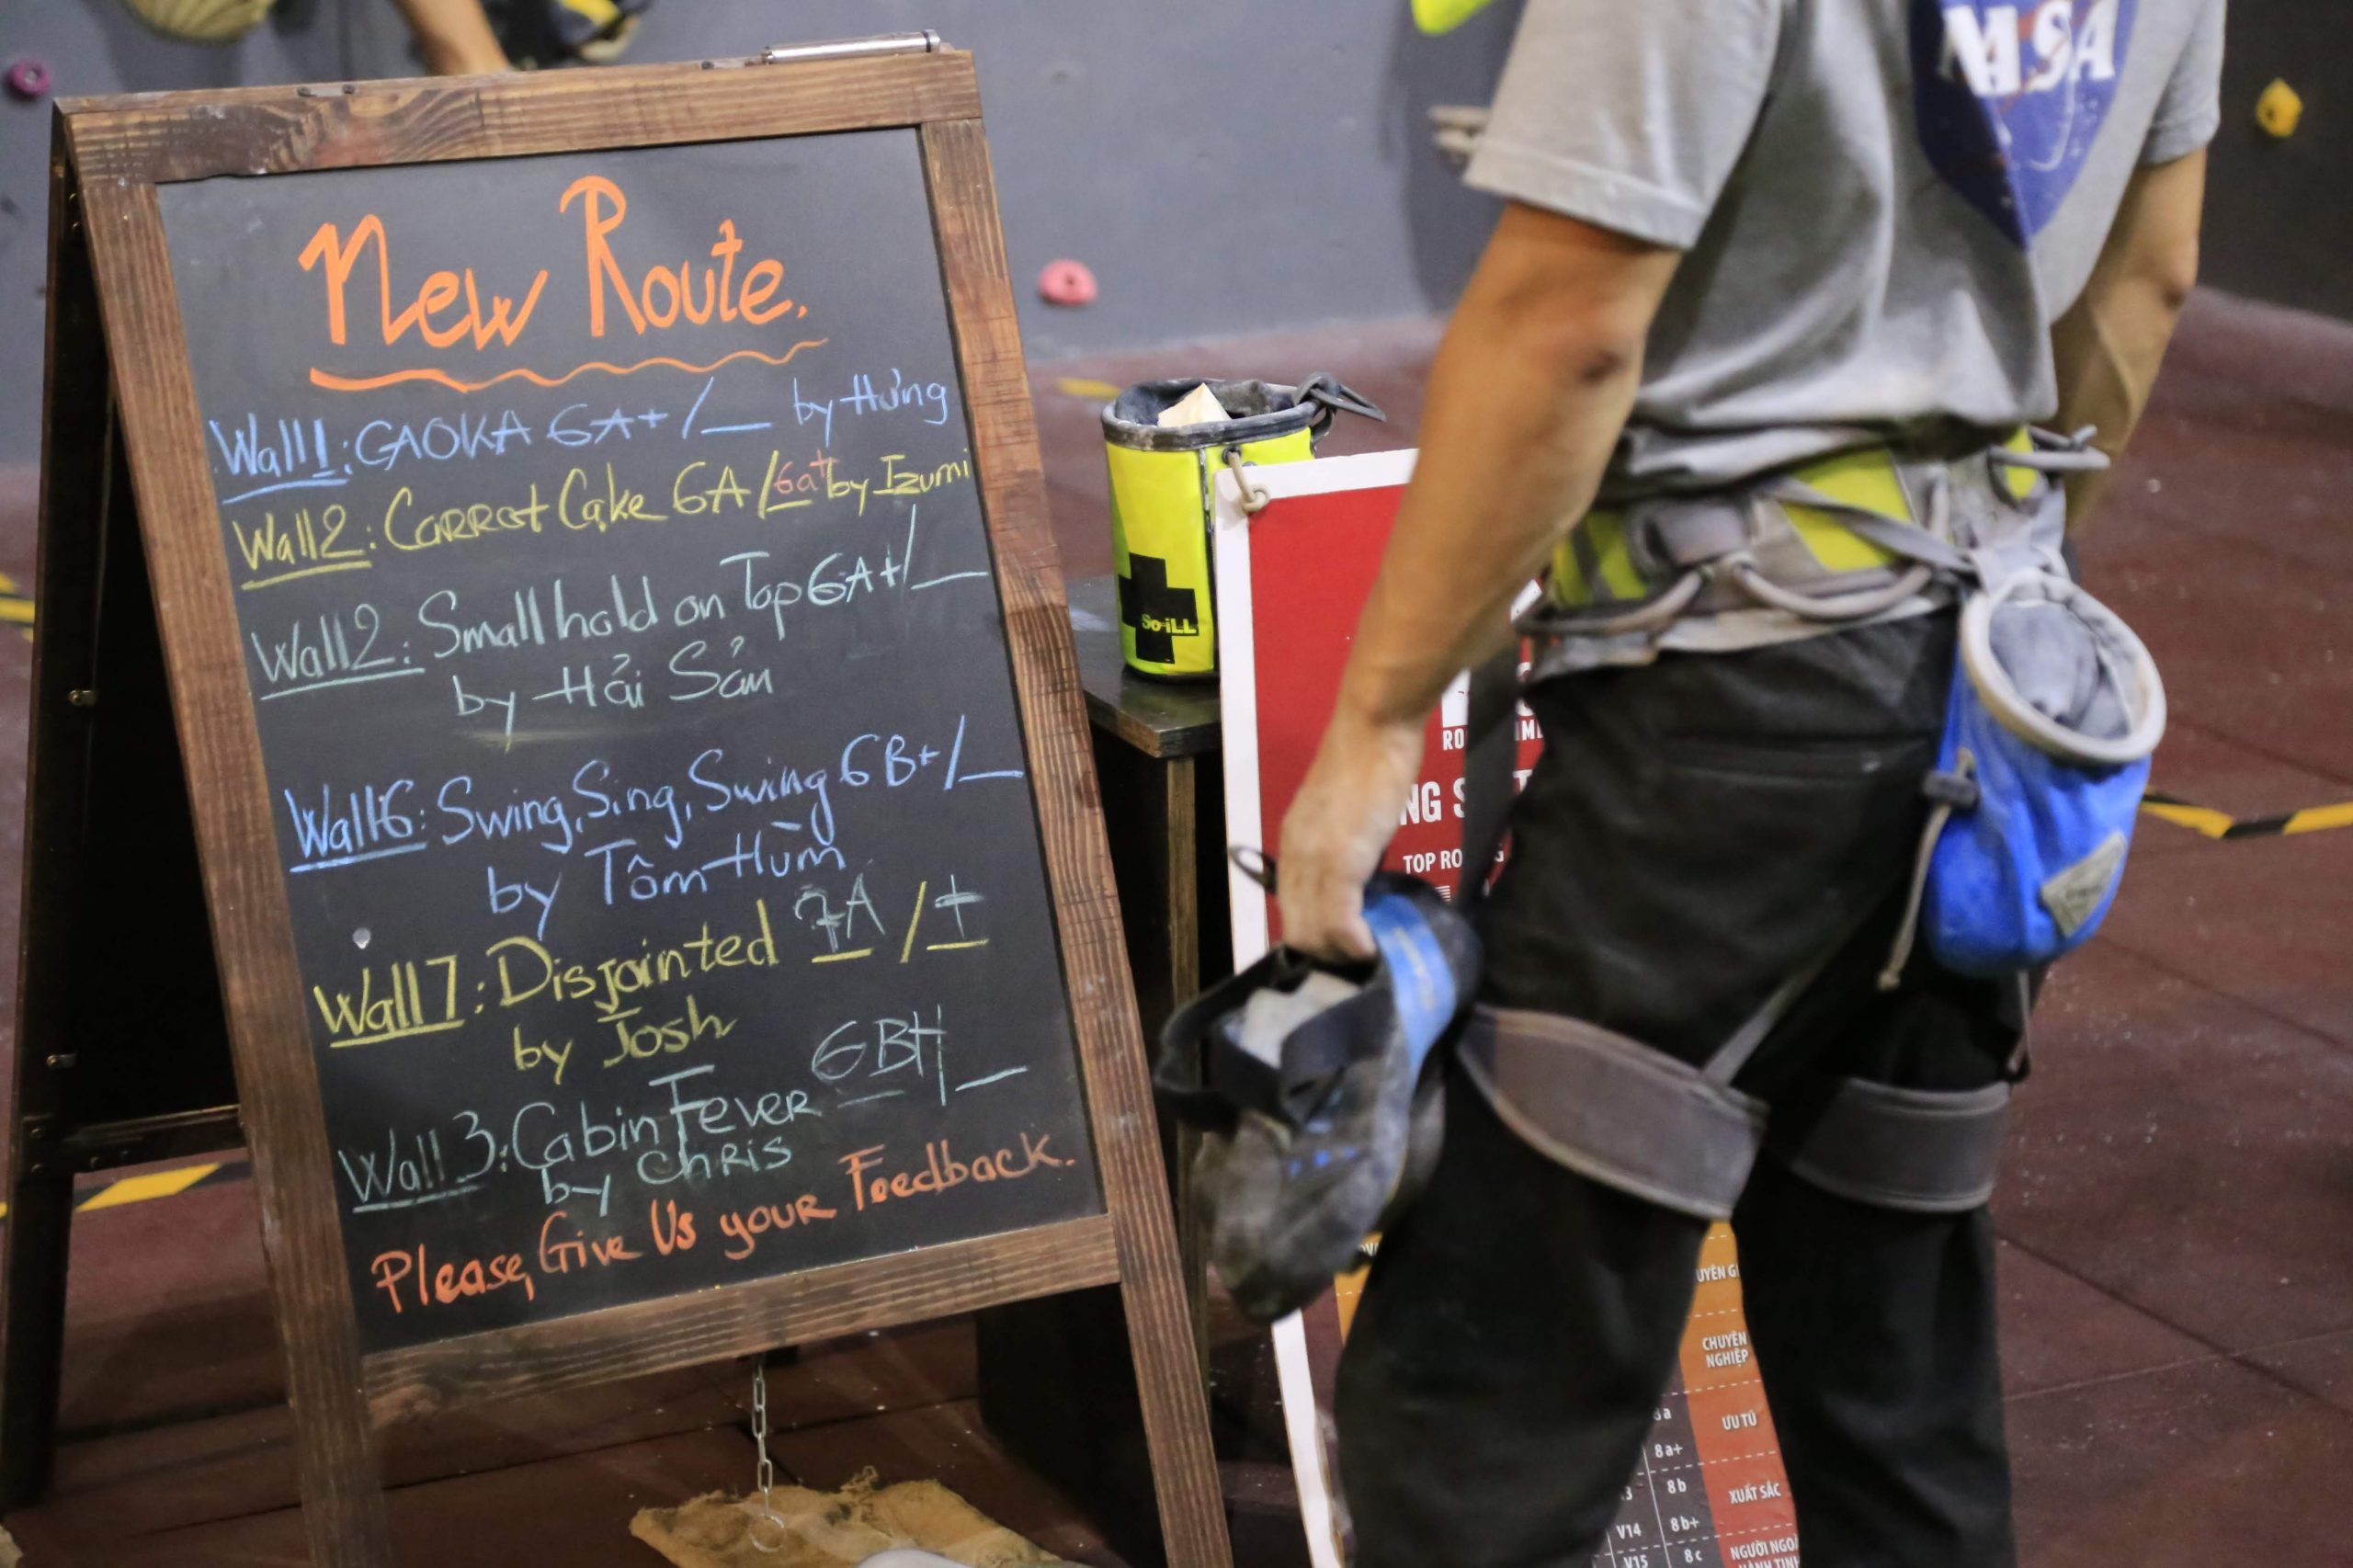 New Route.
Wall 1: GAOKA 6A+/__ by Hưng
Wall 2: Carrot Cake 6A/6a+ by Izumi
Wall 2: Small hold on Top 6A+/__
by Hải Sản
Wall 6: Swing, Sing, Swing 6B+/__
by Tôm Hùm
Wall 7: Disjointed 7A/+
by Josh
Wall 3: Cabin Fever 6B+/__
by Chris
Please, Give Us your Feedback.
So iLL
NASA
TOP RO
CHUYÊN
NGHIỆP
ƯU TÚ
8a+
8b
XUẤT SẮC
V14 8b+
V15 8c
NGƯỜI